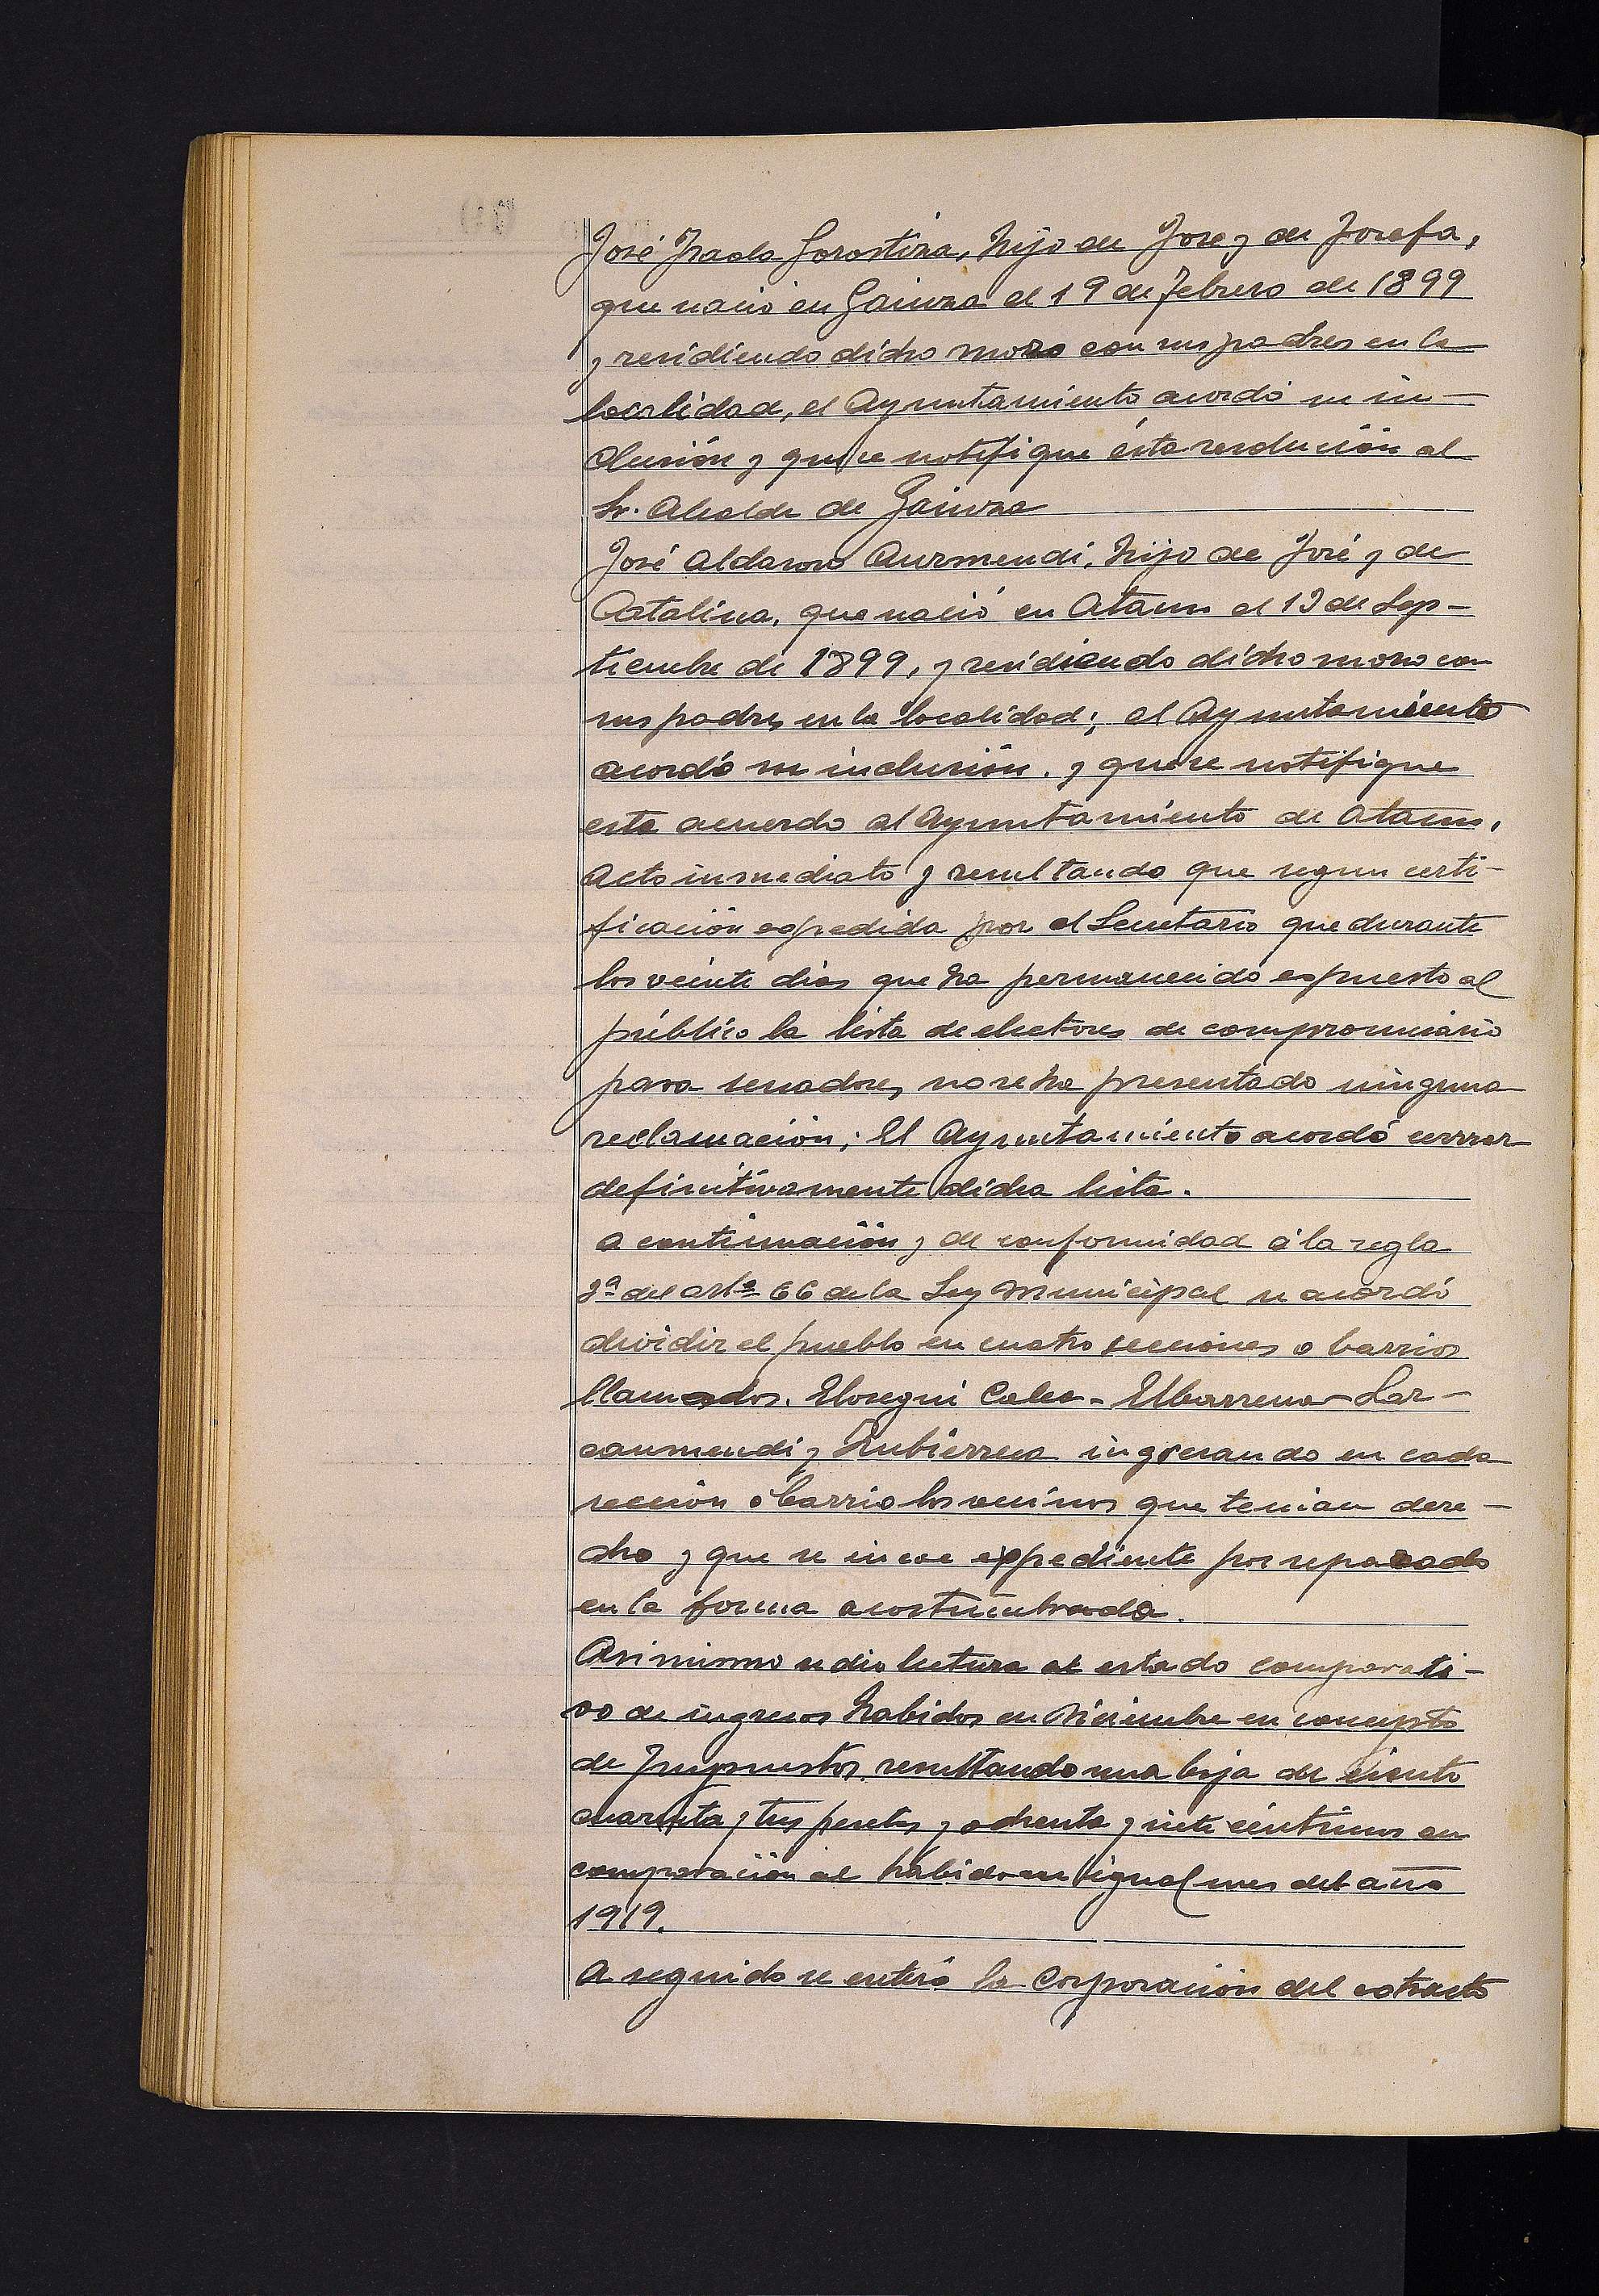 José Gorostiza, hijo de Jose y de Josefa,
que nació en Gainza el 19 de Febrero de 1899
y residiendo dicho mozo con sus padres en la
localidad, el Ayuntamiento acordó su in-
clusión y que se notifique ésta resolución al
Sr. Alcalde de Gainza
José Aldasoro Aurmendi, hijo de José y de
Catalina, que nació en Ataun el 12 de Sep-
tiembre de 1899, y residiendo dicho mozo con
sus padres en la localidad; el Ayuntamiento
acordó su inclusión. y que se notifique
este acuerdo al Ayuntamiento de Ataun.
Acto inmediato y resultando que segun certi-
ficación espedida por el Secretario que durante
los veinte dias que ha permanecido espuesto al
público la lista de electores de compromisario
para senadores, no se ha presentado ninguna
reclamación; El Ayuntamiento acordó cerrar
definitivamente dicha lista.
A continuación y de conformidad á la regla
2ª del artº 66 de la Ley Municipal se acordó
dividir el pueblo en cuatro secciones o barrios
llamados. Elosegui Calea - Elbarrena - Lar-
caumendi y Zubierreca ingresando en cada
sección ó barrio los vecinos que tenian dere-
cho y que se incoe expediente por separado
en la forma acostumbrada.
Asi mismo se dio lectura al estado comparati-
vo de ingresos habidos en Diciembre en concepto
de Impuestos. resultando una baja de ciento
cuarenta y tres pesetas y ochenta y siete céntimos en
comparación al habido en igual mes del año
1919.
A seguido se enteró la Corporación del estracto